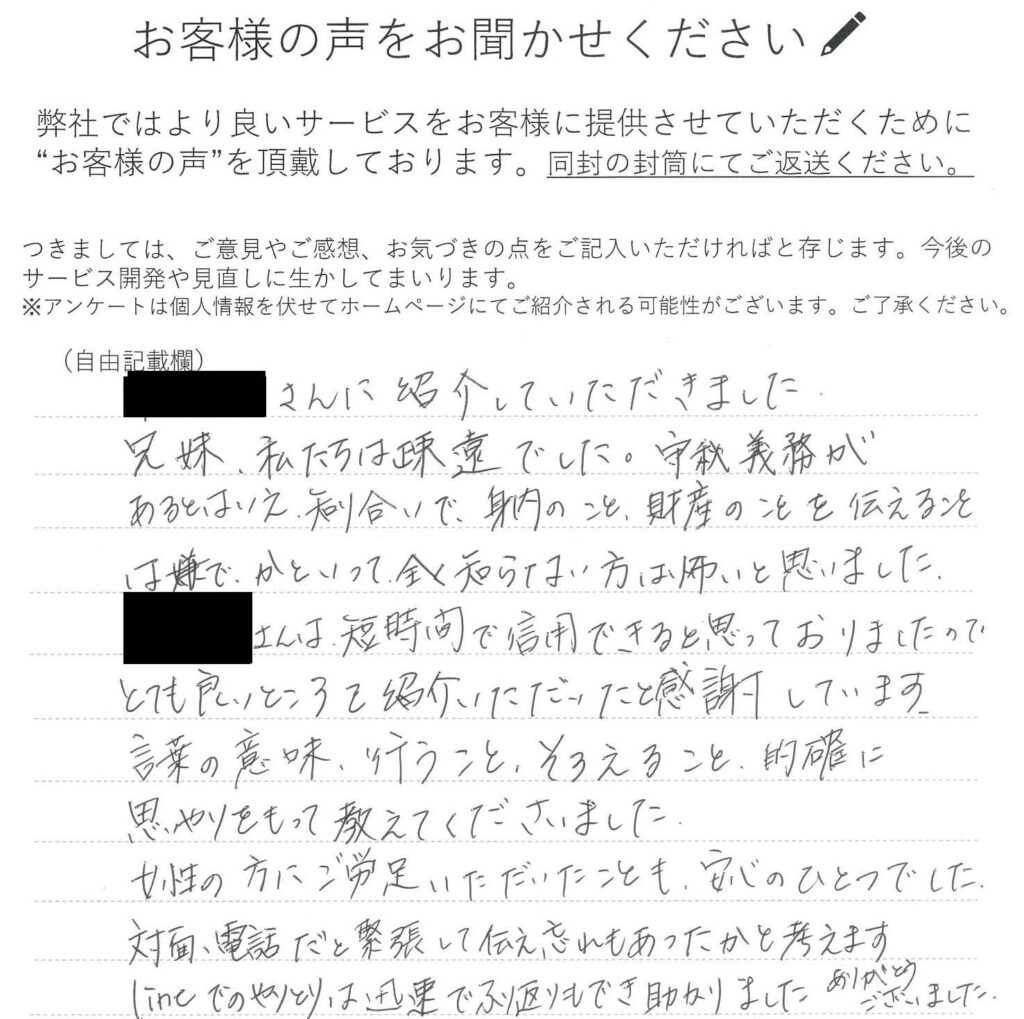 お客様の声をお聞かせください
弊社ではより良いサービスをお客様に提供させていただくために
“お客様の声”を頂戴しております。同封の封筒にてご返送ください。
つきましては、ご意見やご感想、お気づきの点をご記入いただければと存じます。今後の
サービス開発や見直しに生かしてまいります。
※アンケートは個人情報を伏せてホームページにてご紹介される可能性がございます。ご了承ください。
（自由記載欄）
さんに紹介していただきました.
兄妹、私たちは疎遠でした。守秘義務が
あるとはいえ、知り合いで、身内のこと、財産のことを伝えること
は嫌で、かといって、全く知らない方は怖いと思いました.
さんは、短時間で信用できると思っておりましたので
とても良いところを紹介いただいたと感謝しています
言葉の意味、行うこと、そろえること、的確に
思いやりをもって教えてくださいました.
女性の方にご労足いただいたことも、安心のひとつでした.
対面、電話だと緊張して伝え忘れもあったかと考えます
lineでのやりとりは迅速でふり返りもでき助かりました ありがとう
ございました.